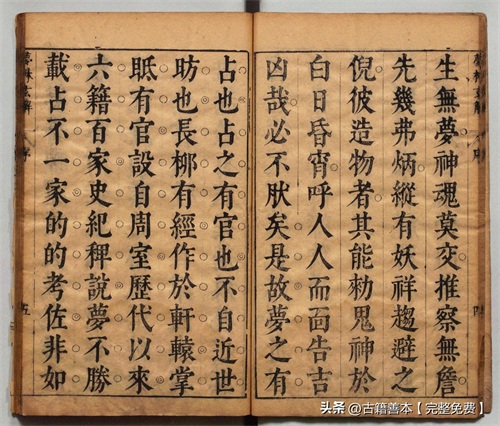 生無夢神魂莫交推察無詹
先幾弗炳縱有妖祥趨避之
倪彼造物者其能勑鬼神於
白日昏宵呼人人而面告吉
凶哉必不肰矣是故夢之有
占也占之有官也不自近世
昉也長柳有經作於軒轅掌
眂有官設自周室歷代以來
六籍百家史紀稗說夢不勝
載占不一家的的考佐非如
夢林玄解 序 五
头条 @古籍善本【完整免费】